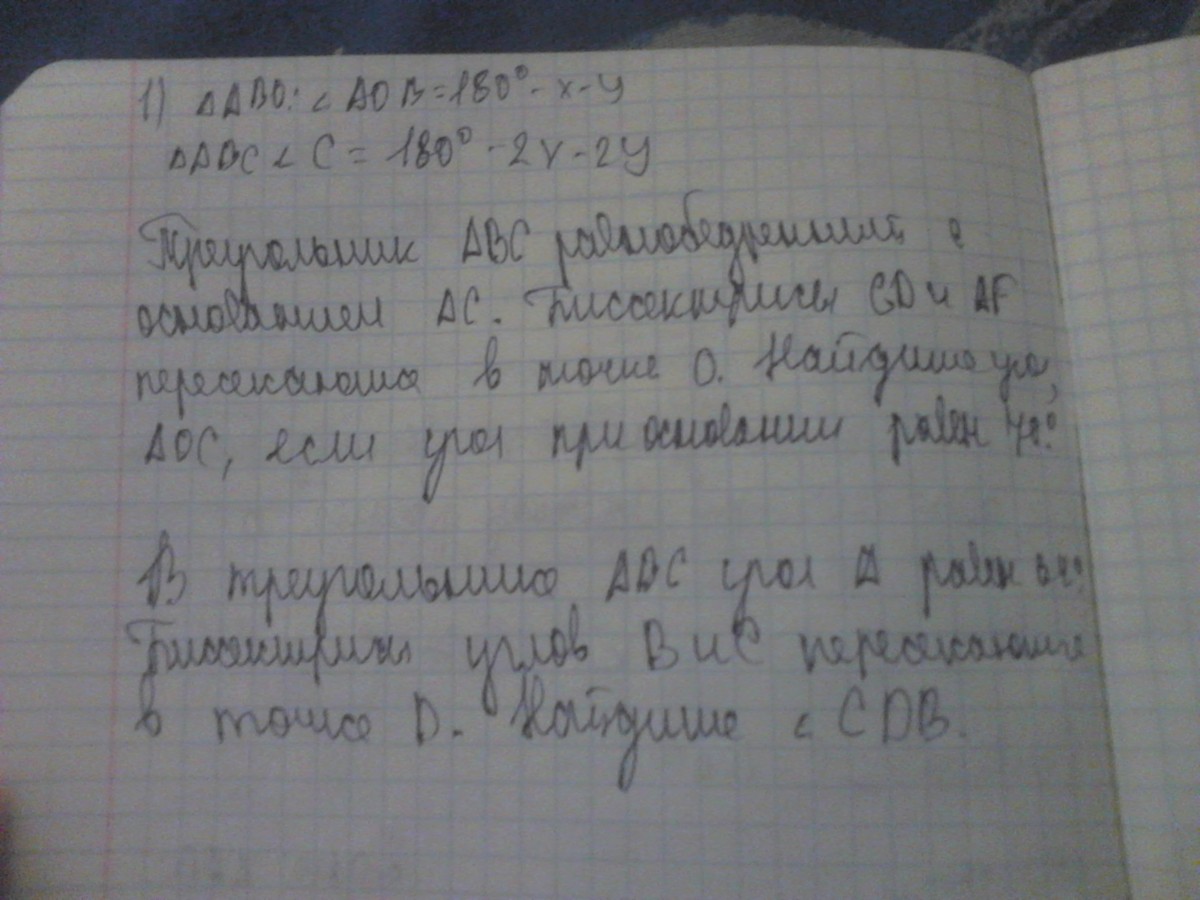 1) △ABO: ∠AOB=180°-x-y
△ABC ∠C = 180°-2x-2y
Треугольник ABC равнобедренный с
основанием AC. Биссектрисы CD и AF
пересекаются в точке O. Найдите угол,
AOC, если угол при основании равен
В треугольнике ABC угол A равен
Биссектрисы углов B и C пересекаются
в точке D. Найдите ∠CDB.